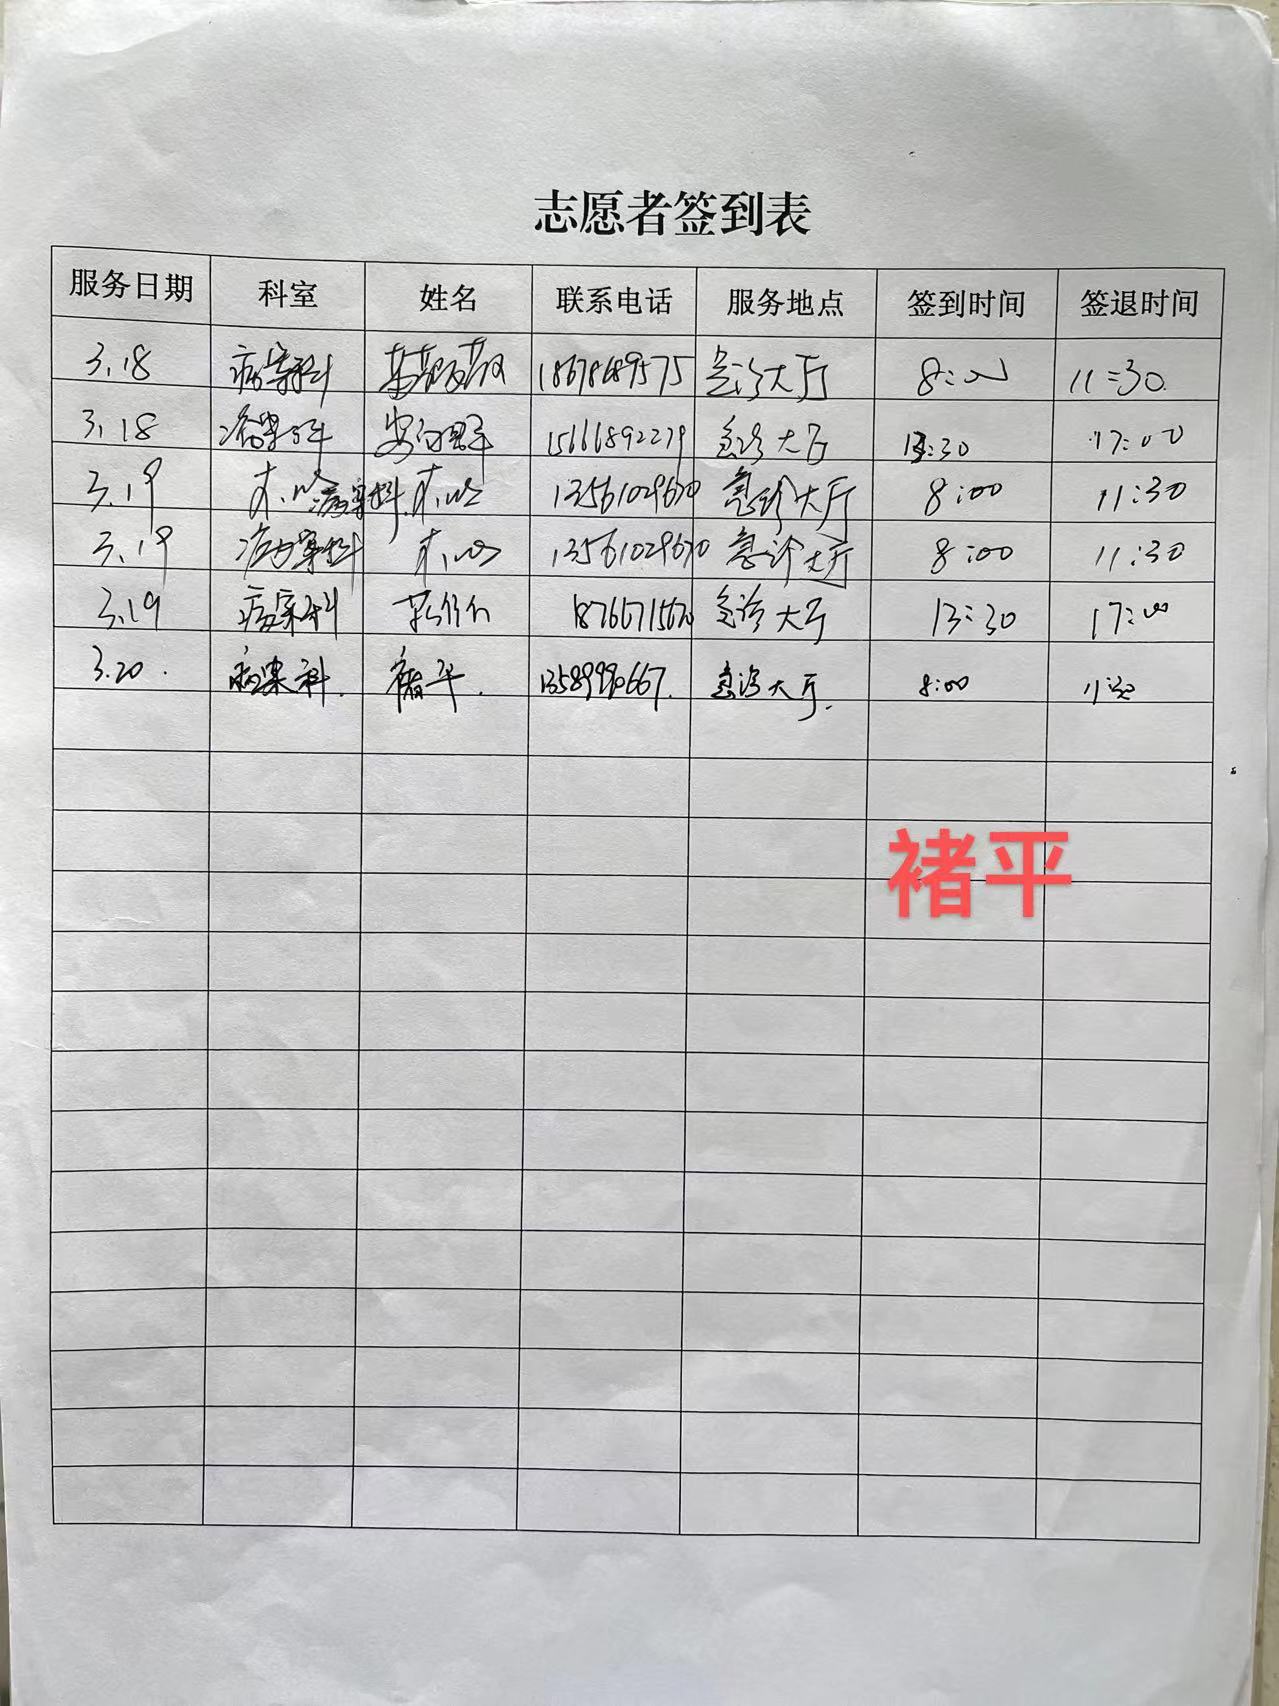 志愿者签到表
服务日期 科室 姓名 联系电话 服务地点 签到时间 签退时间
3.18 病案科 18678689575 急诊大厅 8:00 11:30
3.18 病案科 15666892279 急诊大厅 13:30 17:00
3.19 病案科 13561029670 急诊大厅 8:00 11:30
3.19 病案科 13561029670 急诊大厅 8:00 11:30
3.19 病案科 急诊大厅 13:30 17:00
3.20. 病案科. 褚平. 急诊大厅. 8:00 11:30
褚平